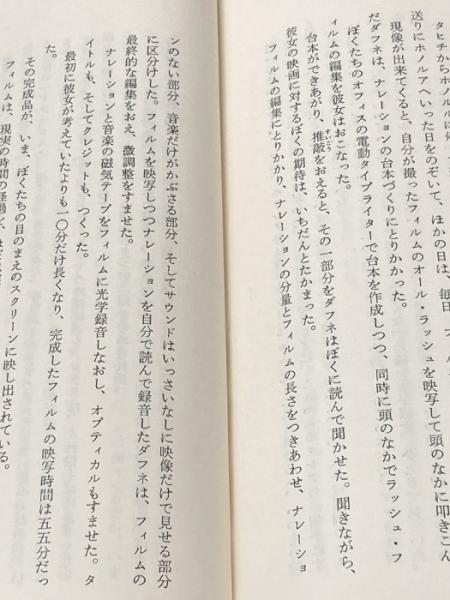 タヒチからホノルルに帰
送りにホノルルへいった日をのぞいて、ほかの日は、毎日、フィル
現像が出来てくると、自分が撮ったフィルムのオール・ラッシュを映写して頭のなかに叩きこん
だダフネは、ナレーションの台本づくりにとりかかった。
ぼくたちのオフィスの電動タイプライターで台本を作成しつつ、同時に頭のなかでラッシュ・フ
ィルムの編集を彼女はおこなった。
台本ができあがり、推敲をおえると、その一部分をダフネはぼくに読んで聞かせた。聞きながら、
彼女の映画に対するぼくの期待は、いちだんとたかまった。
フィルムの編集にとりかかり、ナレーションの分量とフィルムの長さをつきあわせ、ナレーショ
ンのない部分、音楽だけがかぶさる部分、そしてサウンドはいっさいなしに映像だけで見せる部分
に区分けした。フィルムを映写しつつナレーションを自分で読んで録音したダフネは、フィルムの
最終的な編集をおえ、微調整をすませた。
ナレーションと音楽の磁気テープをフィルムに光学録音しなおし、オプティカルもすませた。タ
イトルも、そしてクレジットも、つくった。
最初に彼女が考えていたよりも一〇分だけ長くなり、完成したフィルムの映写時間は五五分だっ
た。
その完成品が、いま、ぼくたちの目のまえのスクリーンに映し出されている。
フィルムは、現実の時間の経過を、ほ